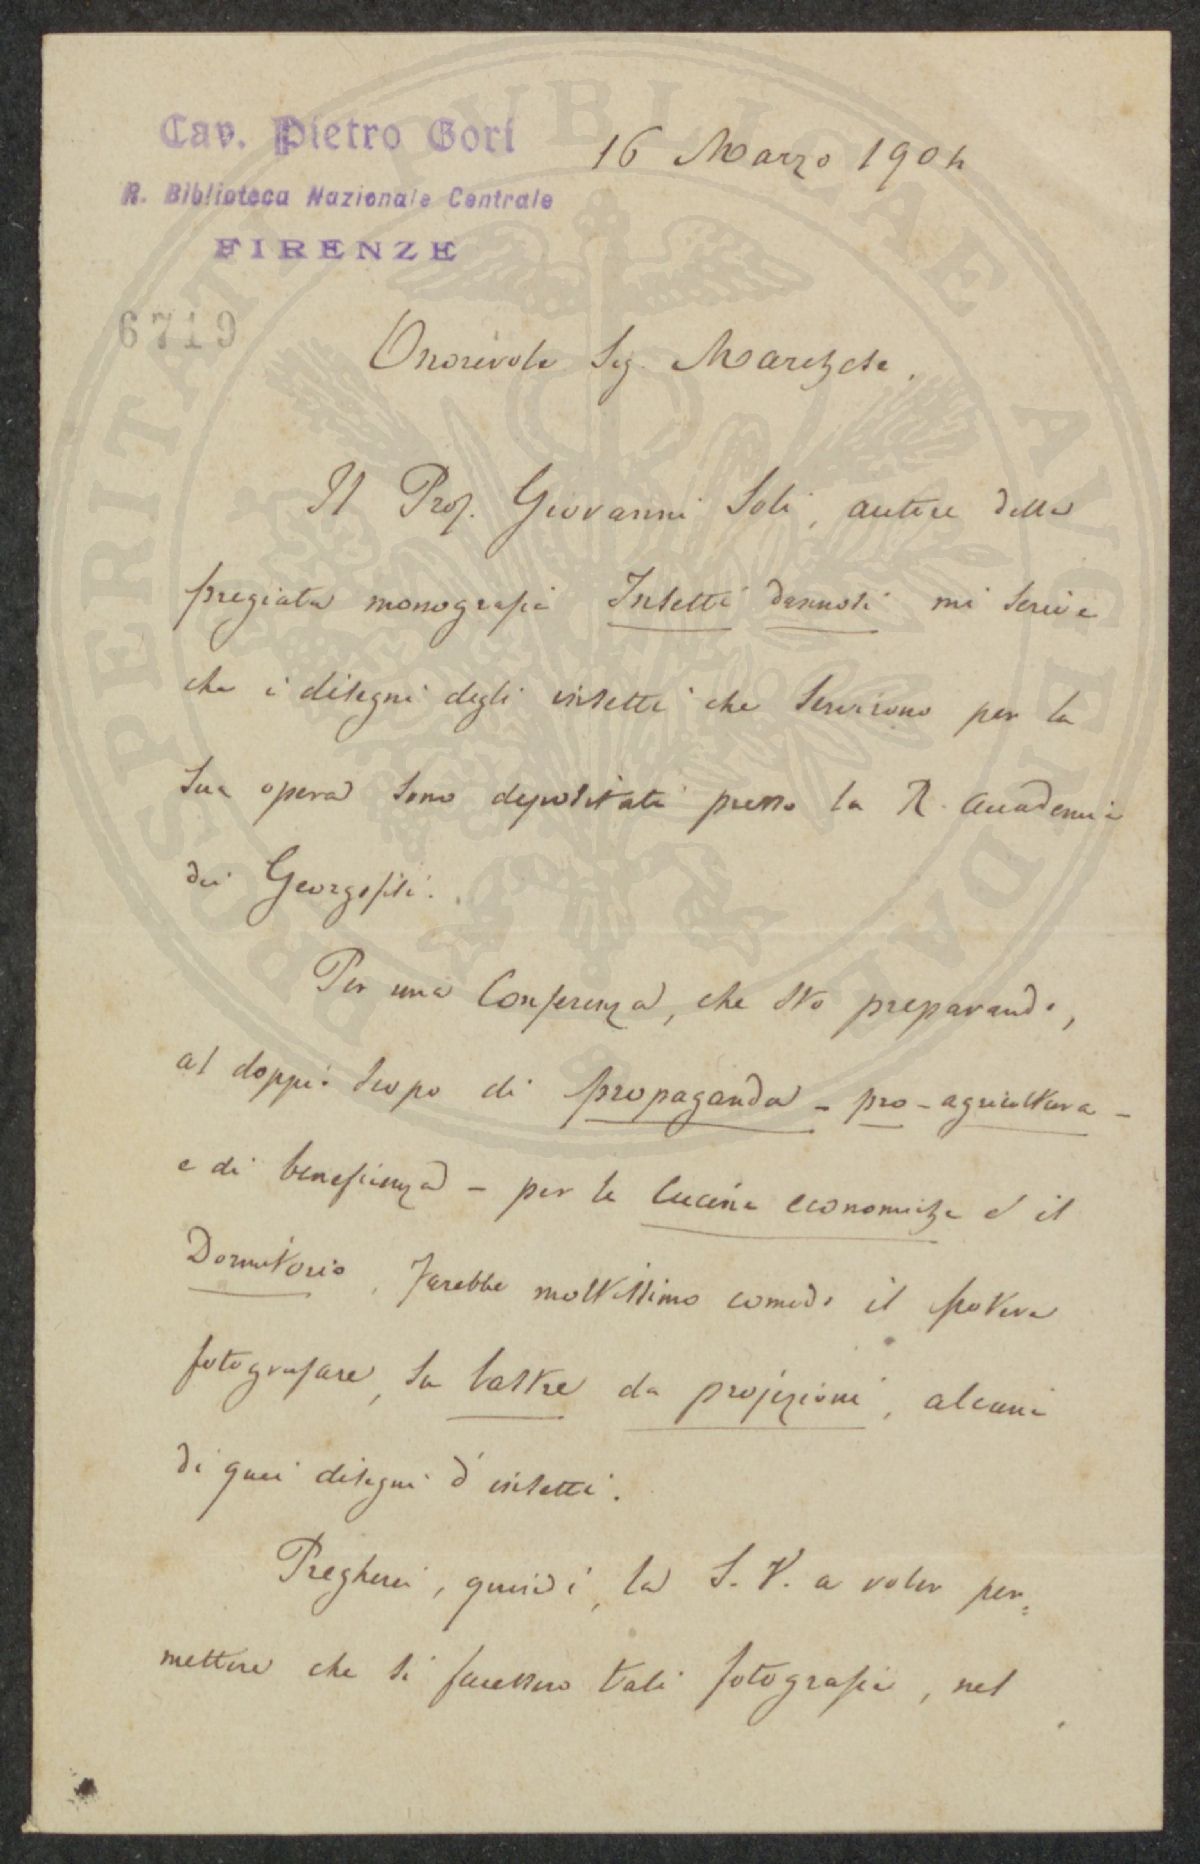 Cav. Pietro Gori
R. Biblioteca Nazionale Centrale
FIRENZE
16 Marzo 1904
6719
PROSPERITATI PUBLICAE AUGENDAE
Onorevole Sig. Marchese.
Il Prof. Giovanni Soli, autore della
pregiata monografia Insetti dannosi mi scrive
che i disegni degli insetti che servirono per la
sua opera sono depositati presso la R. Accademia
dei Georgofili.
Per una Conferenza, che sto preparando,
al doppio scopo di propaganda - pro-agricoltura -
e di beneficenza - per le Cucine economiche e il
Dormitorio, farebbe moltissimo comodo il potere
fotografare, su lastre da projezioni, alcuni
di quei disegni d'insetti.
Pregherei, quindi, la S. V. a voler per=
mettere che si facessero tali fotografie, nel